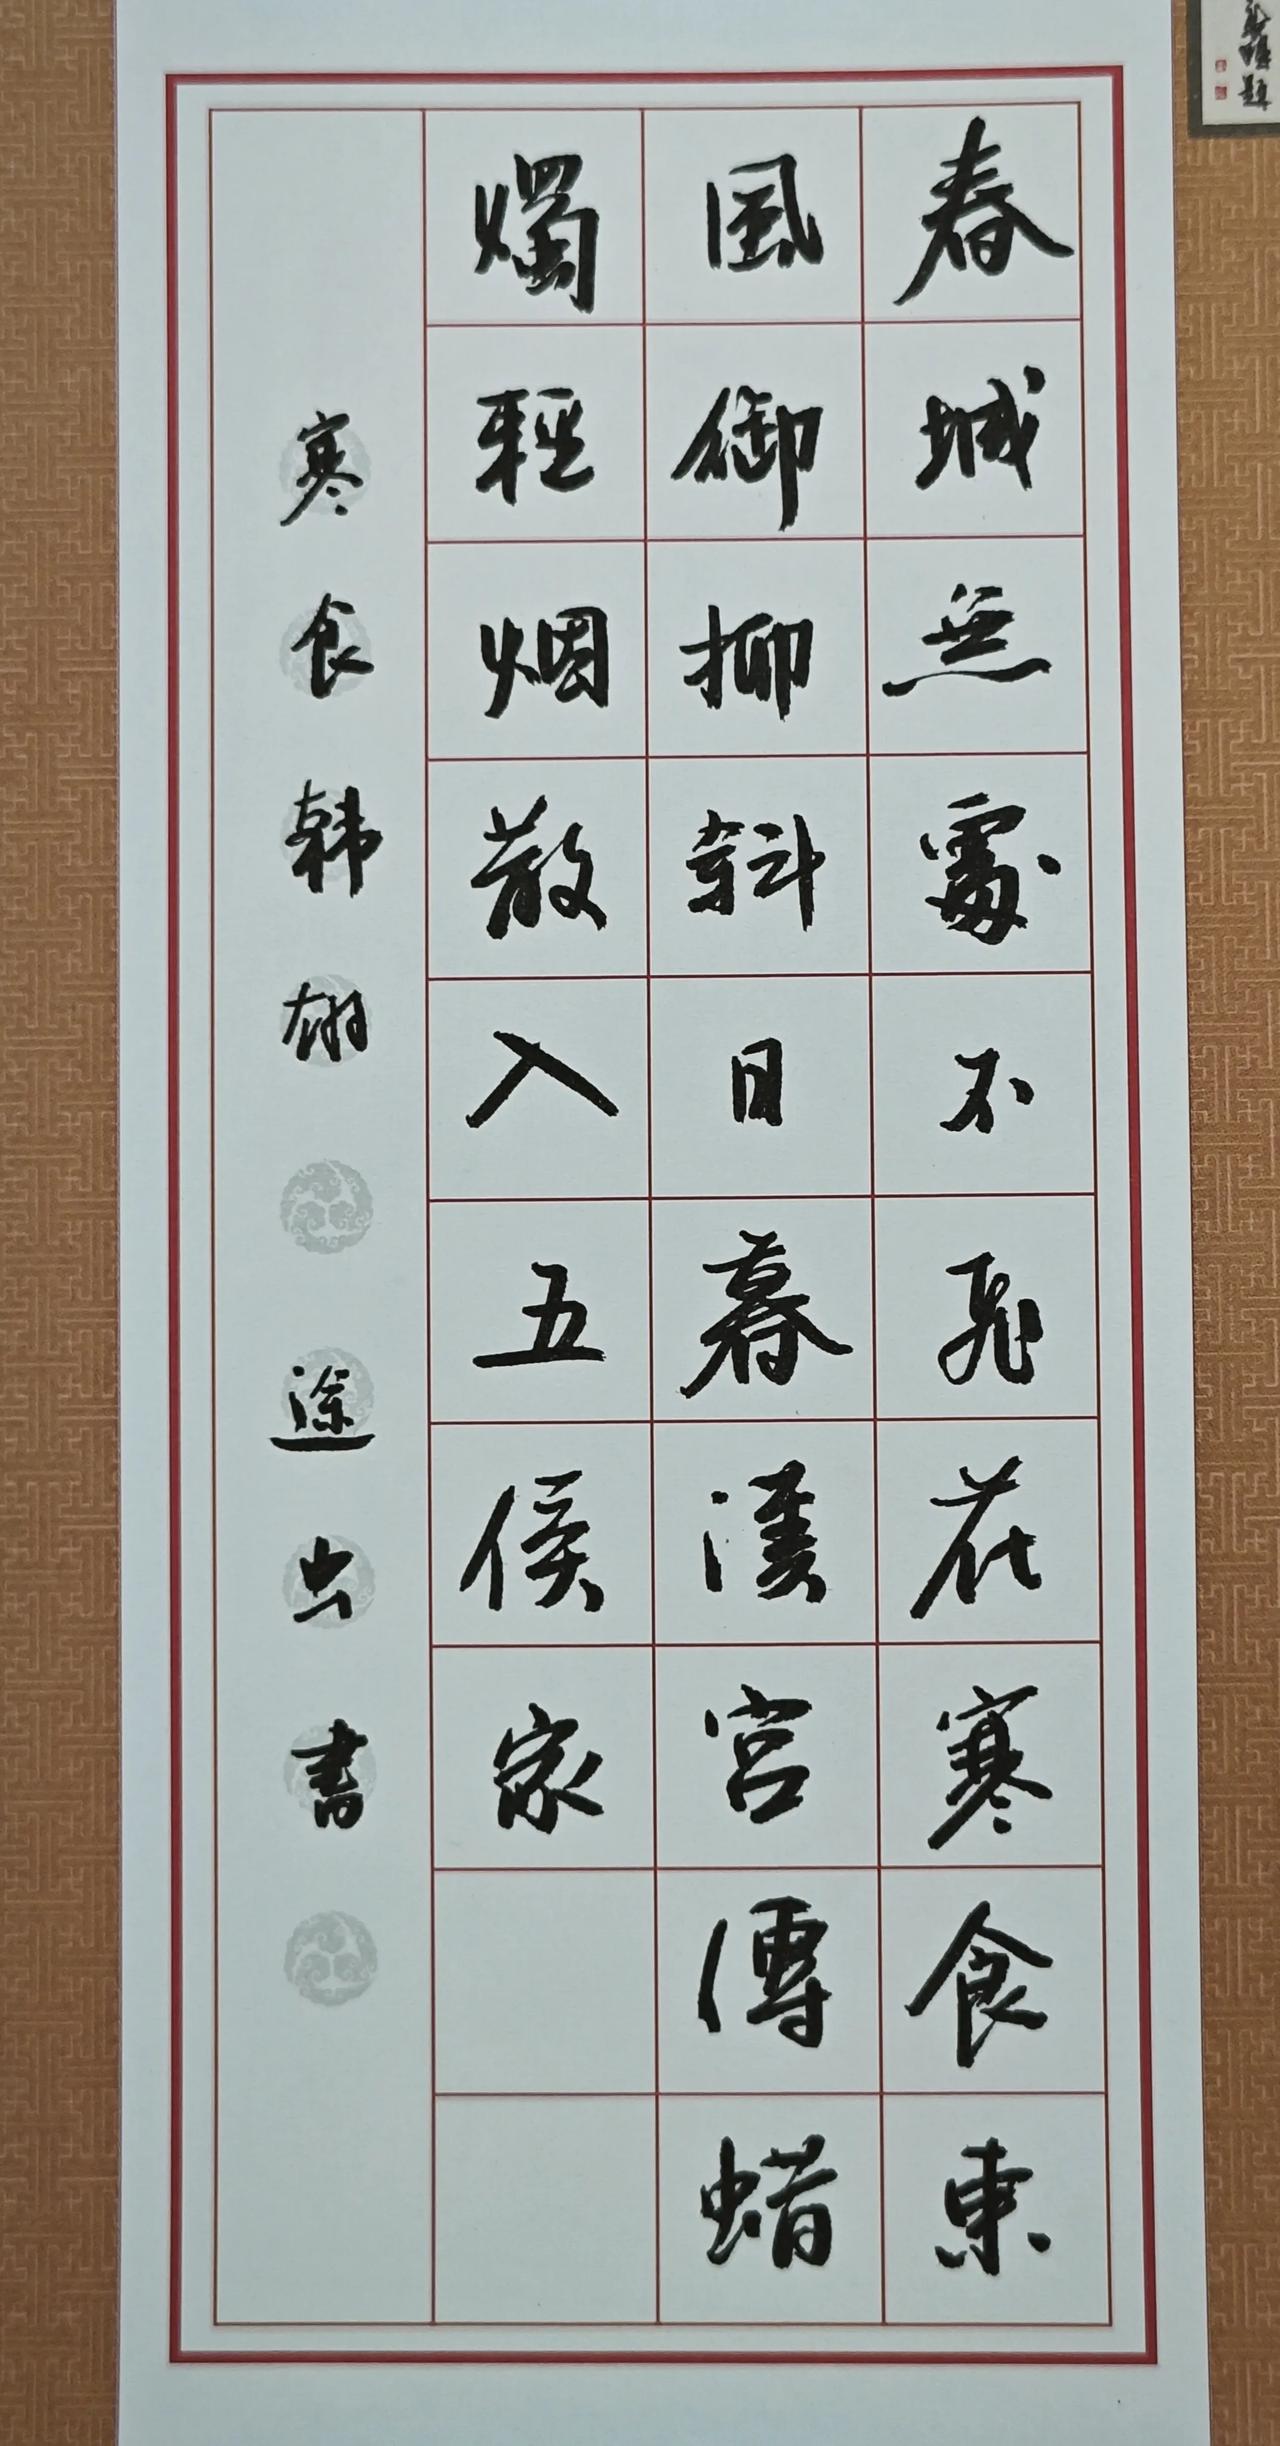 春城無處不飛花寒食東
風御柳斜日暮漢宮傳蜡
燭輕烟散入五侯家
寒食韩翃 途虫書